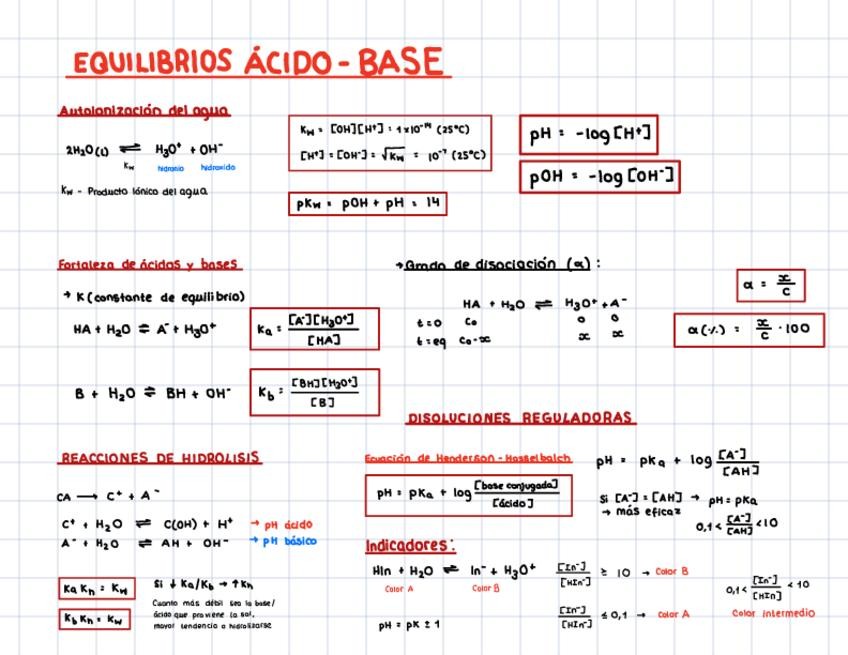 EQUILIBRIOS ÁCIDO - BASE
Autoionización del agua
2H₂O(l) ⇌ H₃O⁺ + OH⁻
Kw hidronio hidroxido
Kw - Producto Iónico del agua
Kw = [OH][H⁺] = 1x10⁻¹⁴ (25°C)
[H⁺] = [OH⁻] = √Kw = 10⁻⁷ (25°C)
pKw = pOH + pH = 14
pH = -log[H⁺]
pOH = -log[OH⁻]
Fortaleza de ácidos y bases
→ K (constante de equilibrio)
HA + H₂O ⇌ A⁻ + H₃O⁺
Ka = [A⁻][H₃O⁺] / [HA]
B + H₂O ⇌ BH + OH⁻
Kb = [BH][H₃O⁺] / [B]
→ Grado de disociación (α) :
HA + H₂O ⇌ H₃O⁺ + A⁻
t=0 C₀ 0 0
t=eq C₀-x x x
α = x / C
α(%) = x / C · 100
REACCIONES DE HIDROLISIS
CA → C⁺ + A⁻
C⁺ + H₂O ⇌ C(OH) + H⁺ → pH ácido
A⁻ + H₂O ⇌ AH + OH⁻ → pH básico
Ka Kh = Kw
Kb Kh = Kw
Si ↓ Ka/Kb → ↑Kh
Cuanto más débil sea la base/
ácido que proviene la sal,
mayor tendencia a hidrolizarse
DISOLUCIONES REGULADORAS
Ecuación de Henderson - Hasselbalch
pH = pKa + log [base conjugada] / [ácido]
pH = pKa + log [A⁻] / [AH]
Si [A⁻] = [AH] → pH = pKa
→ más eficaz
0,1 < [A⁻] / [AH] < 10
Indicadores:
HIn + H₂O ⇌ In⁻ + H₃O⁺
Color A Color B
pH = pK ± 1
[In⁻] / [HIn⁻] ≥ 10 → Color B
[In⁻] / [HIn⁻] ≤ 0,1 → Color A
0,1 < [In⁻] / [HIn] < 10
Color intermedio